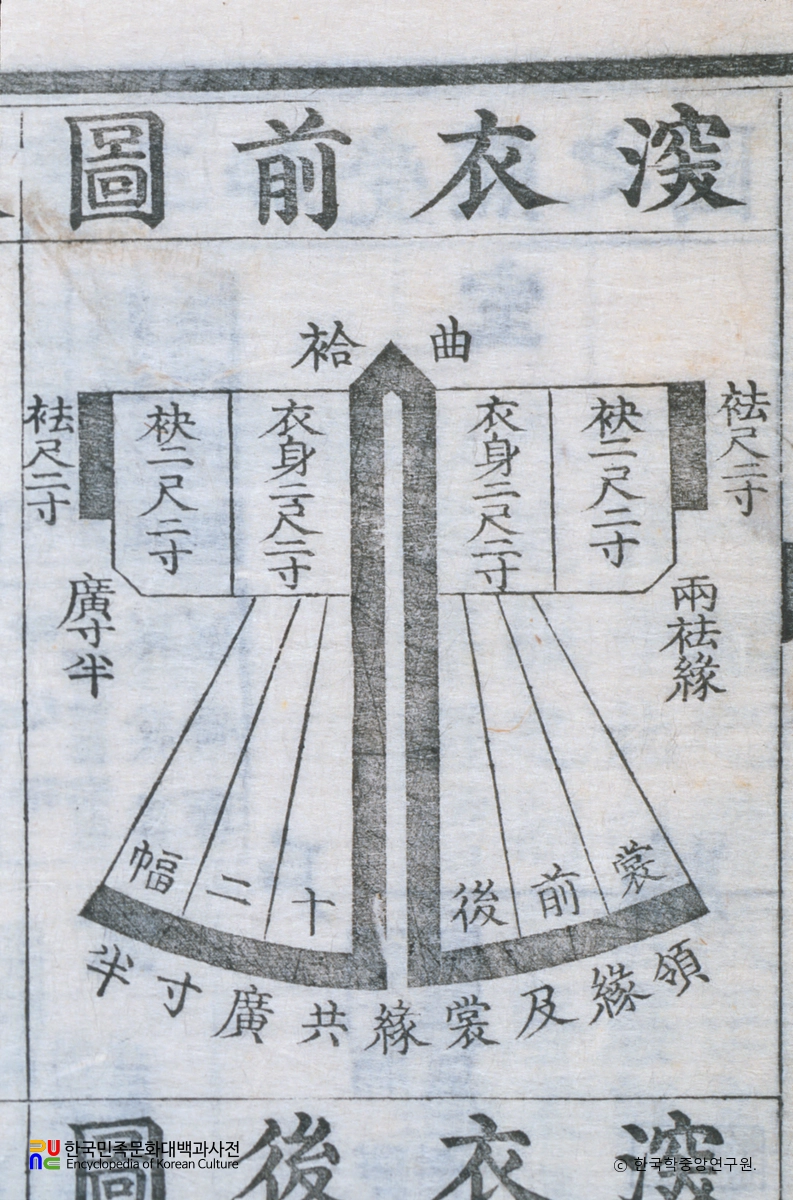 深衣前圖
曲袷
袪尺二寸
袂二尺二寸
衣身二尺二寸
衣身二尺二寸
袂二尺二寸
袪尺二寸
兩袪緣
廣寸半
裳前後
十二幅
領緣及裳緣共廣寸半
深衣後圖
한국민족문화대백과사전
Encyclopedia of Korean Culture
ⓒ 한국학중앙연구원.